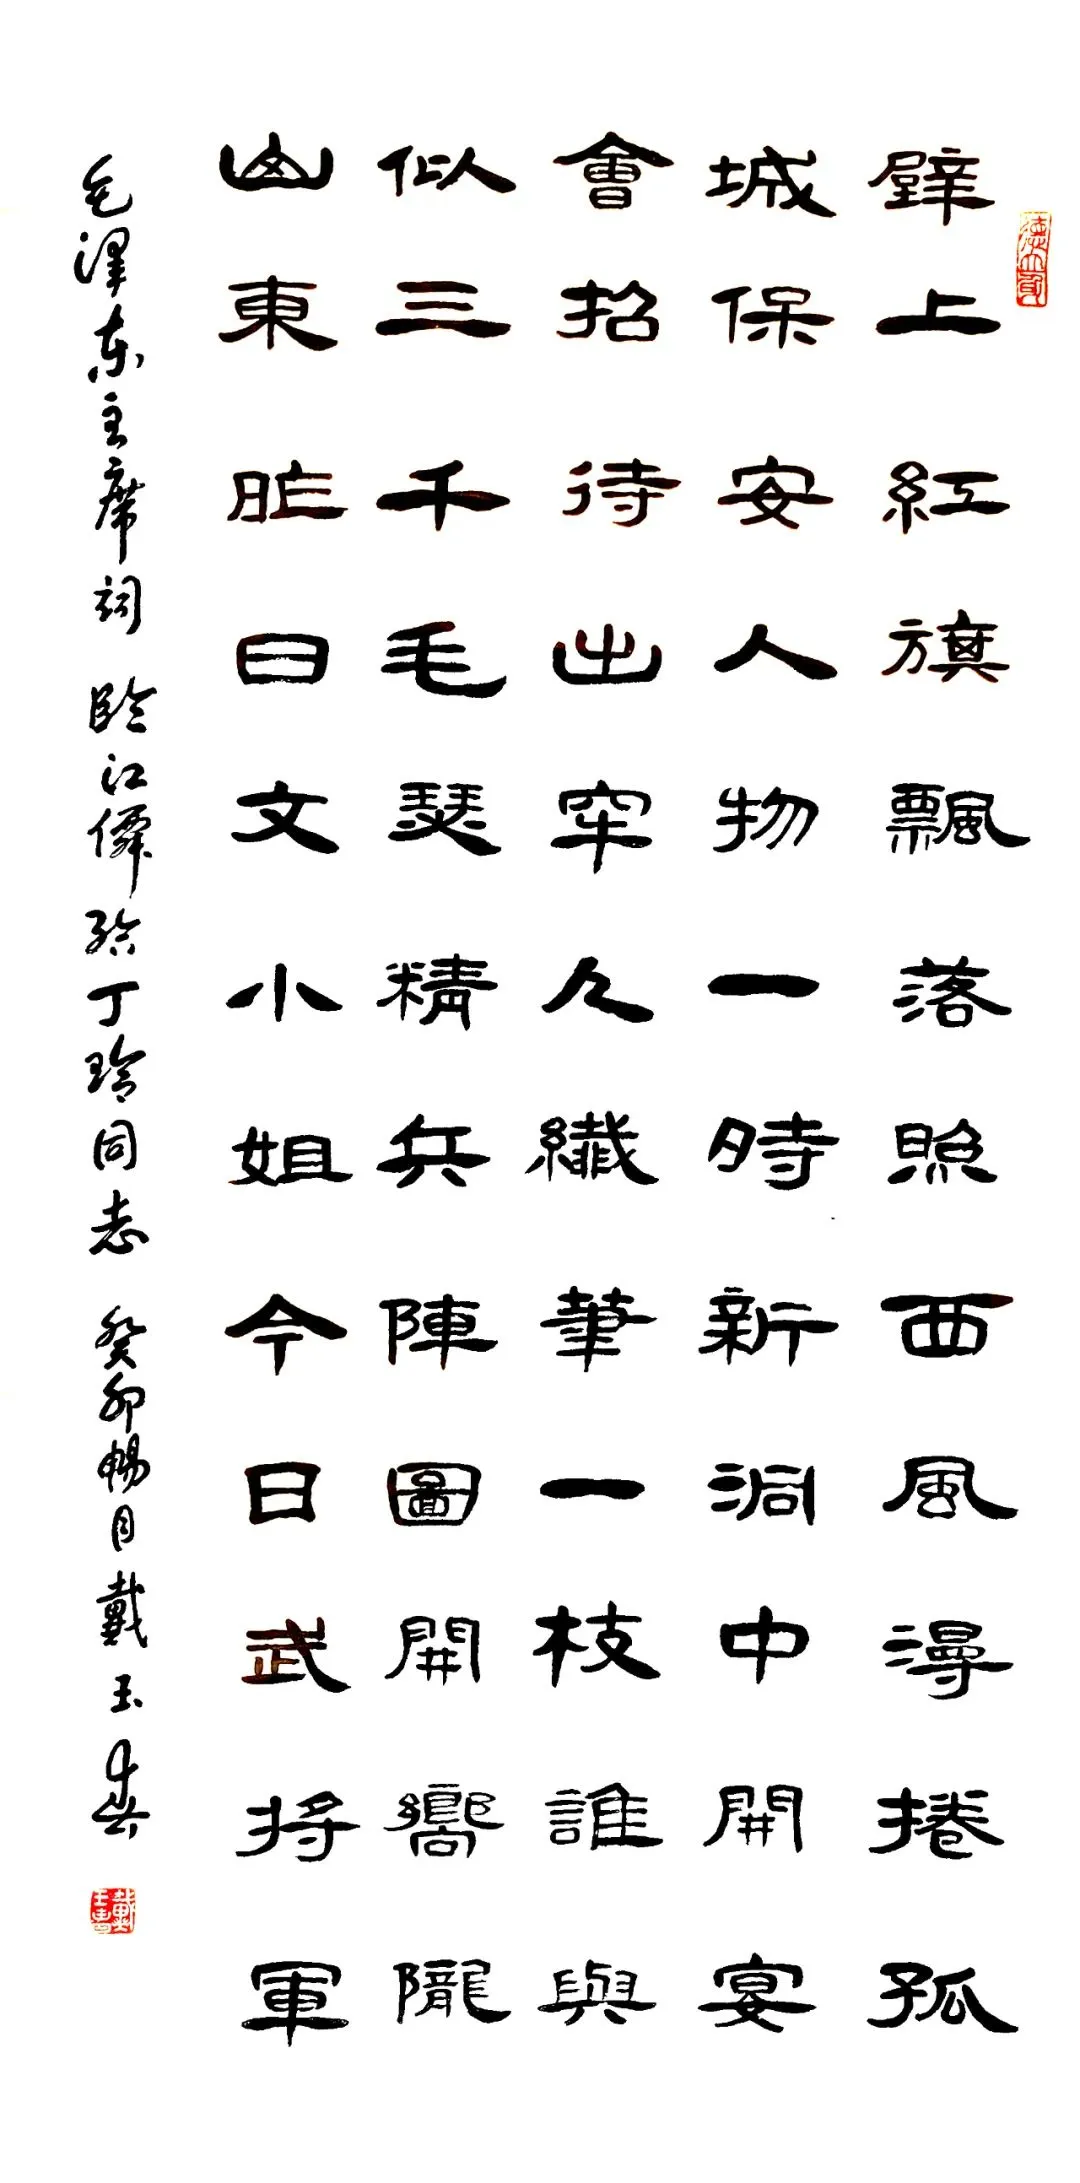 壁上紅旗飄落照西風漫捲孤
城保安人物一時新洞中開宴
會招待出牢人纖筆一枝誰與
似三千毛瑟精兵陣圖開嚮隴
山東昨日文小姐今日武將軍
毛澤东主席詞 臨江僊 給丁玲同志 癸卯暢月戴玉春